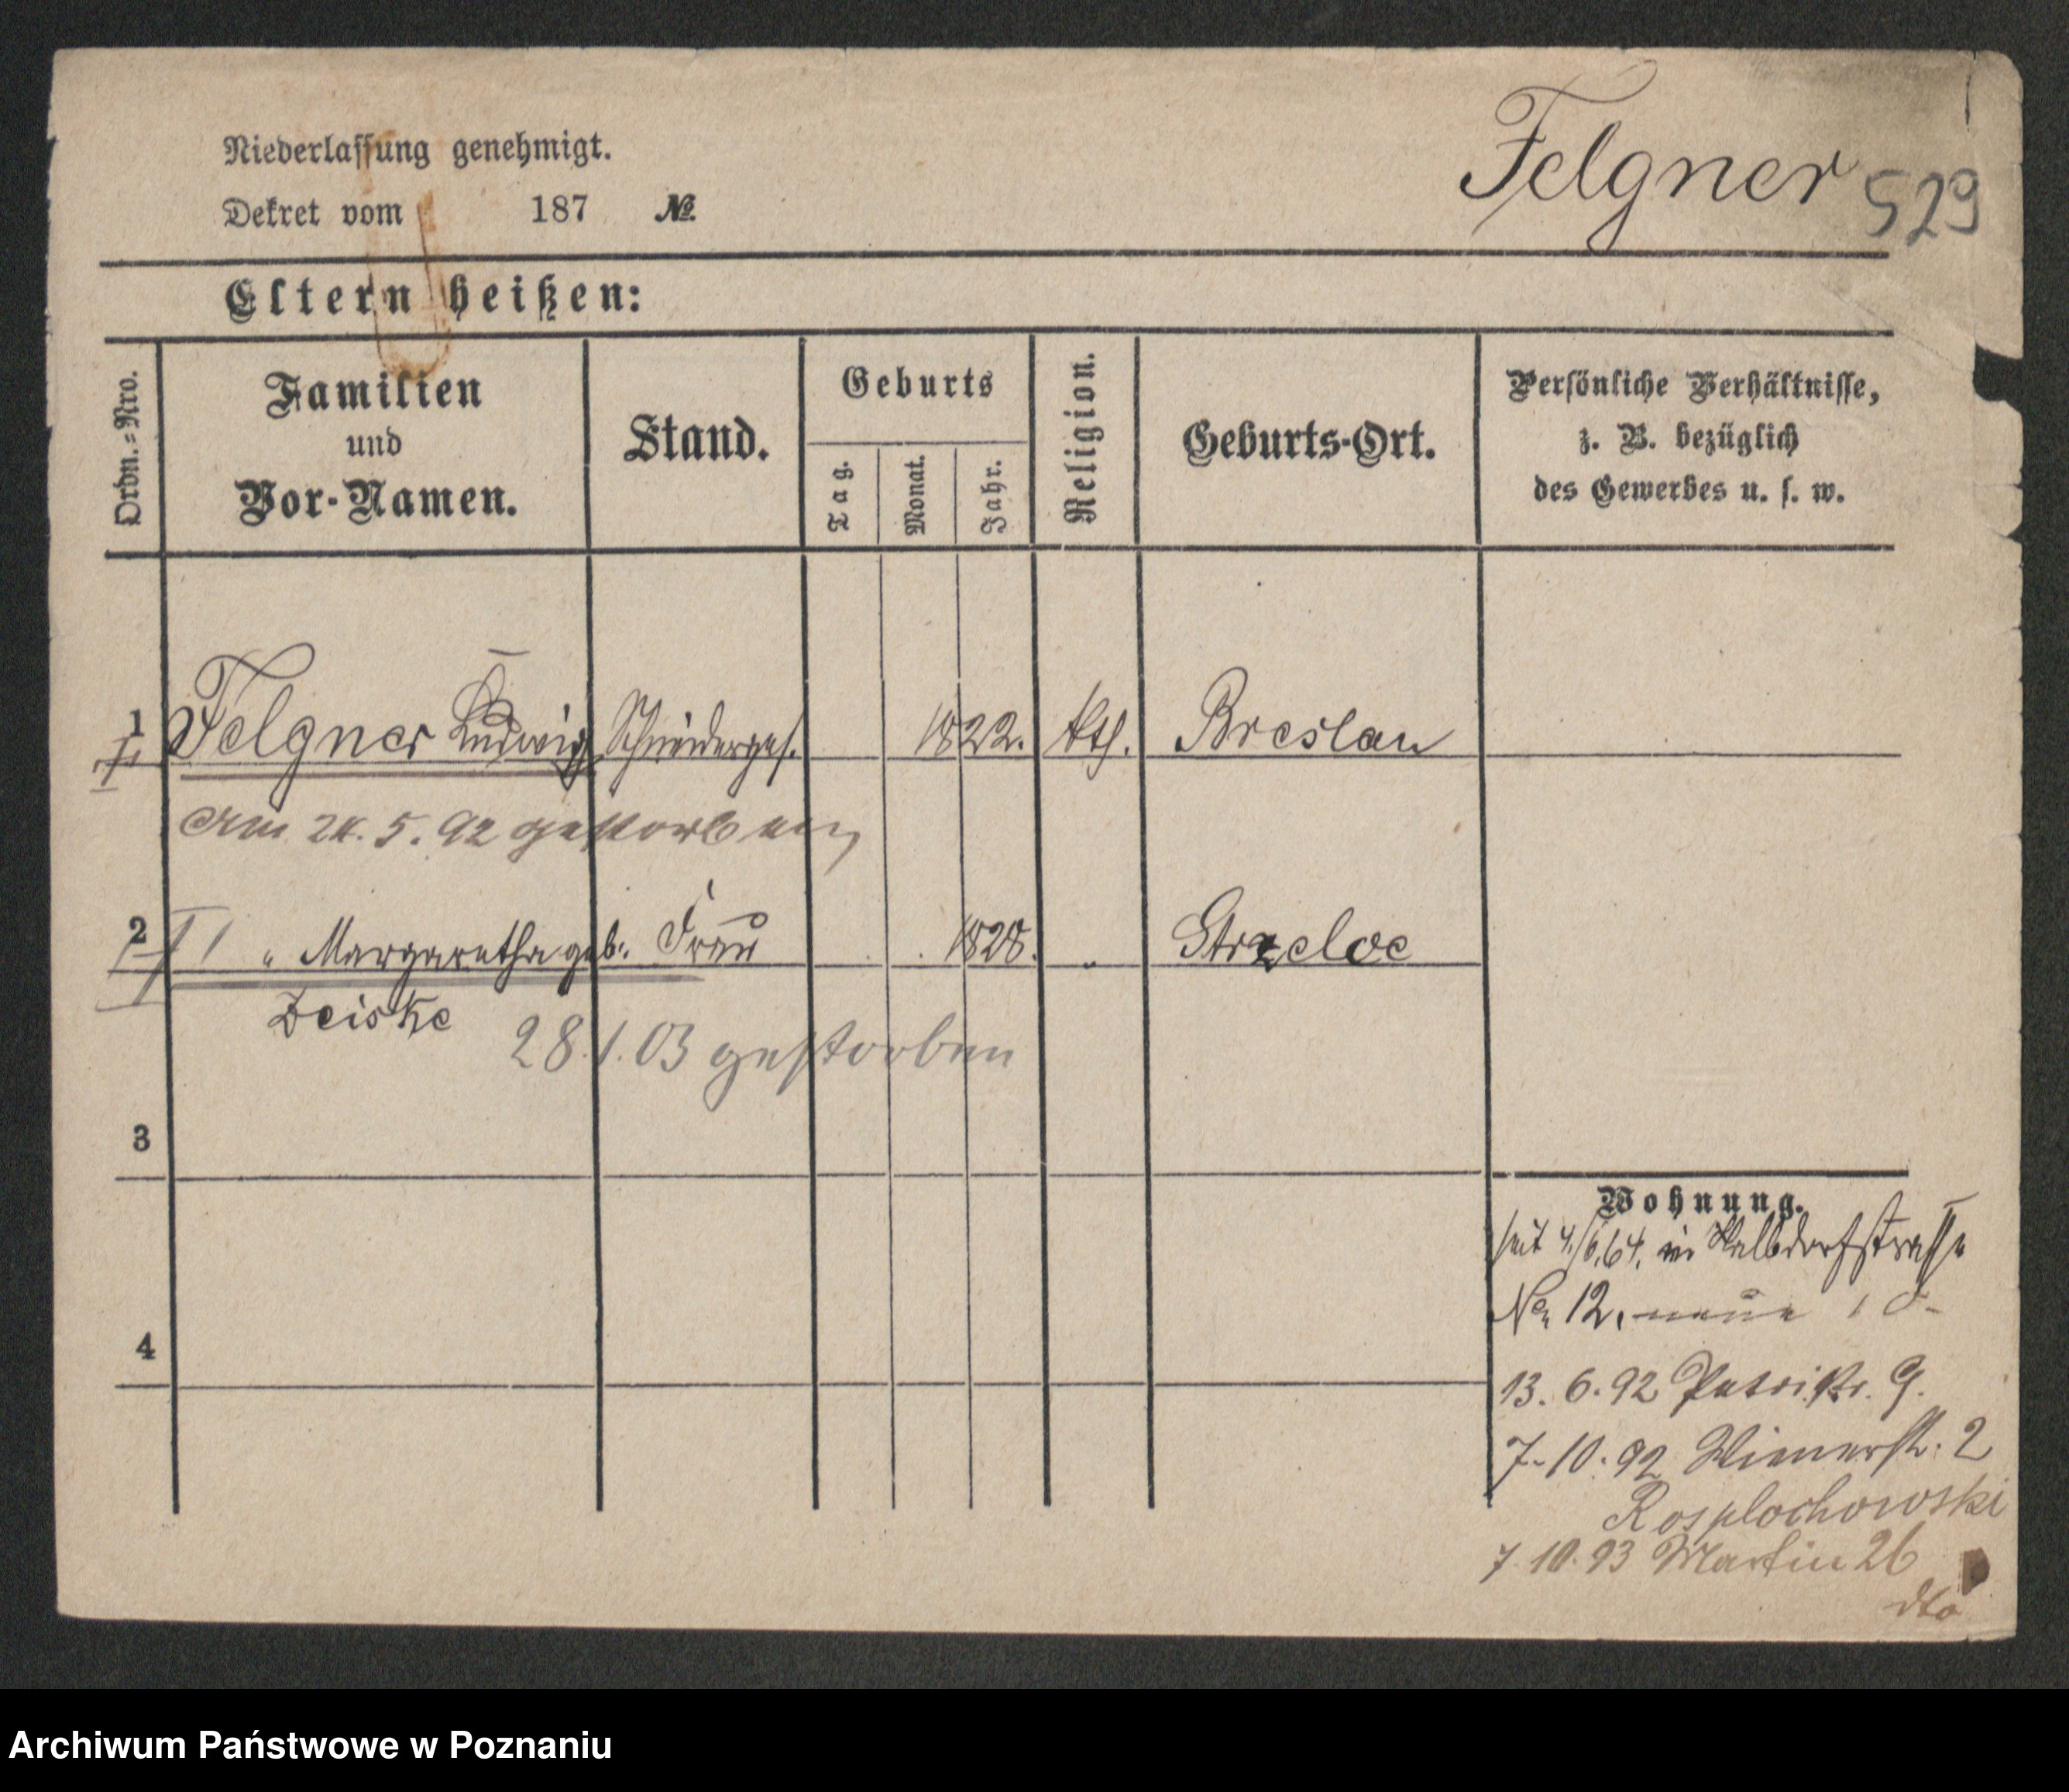 Niederlassung genehmigt.
Dekret vom 187 №
Felgner 529
Eltern heißen:
Ordn.=Nro.
Familien
und
Vor-Namen.
Stand.
Geburts
Tag.
Monat.
Jahr.
Religion.
Geburts-Ort.
Persönliche Verhältnisse,
z. B. bezüglich
des Gewerbes u. s. w.
1 Felgner Ludwig Schneiderges. 1822. kth. Breslau
Am 24. 5. 92 gestorben
2 " Margaretha geb: Frau 1828. " Strzelce
Deiske
28.1.03 gestorben
3
4
Wohnung.
seit 4/6.64. in Halbdorfstrasse
No 12. neue
13. 6. 92 Petristr. 9.
7-10.92 Wienerstr. 2
Rosplochowski
7.10.93 Martin 26
dto
Archiwum Państwowe w Poznaniu